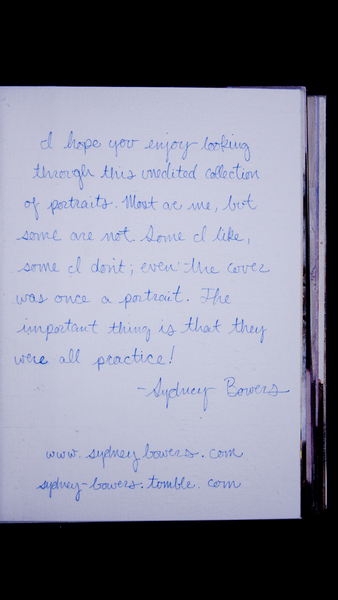 I hope you enjoy looking
through this unedited collection
of portraits. Most are me, but
some are not. Some I like,
some I don't; even the cover
was once a portrait. The
important thing is that they
were all practice!
-Sydney Bowers
www.sydneybowers.com
sydney-bowers.tomble.com